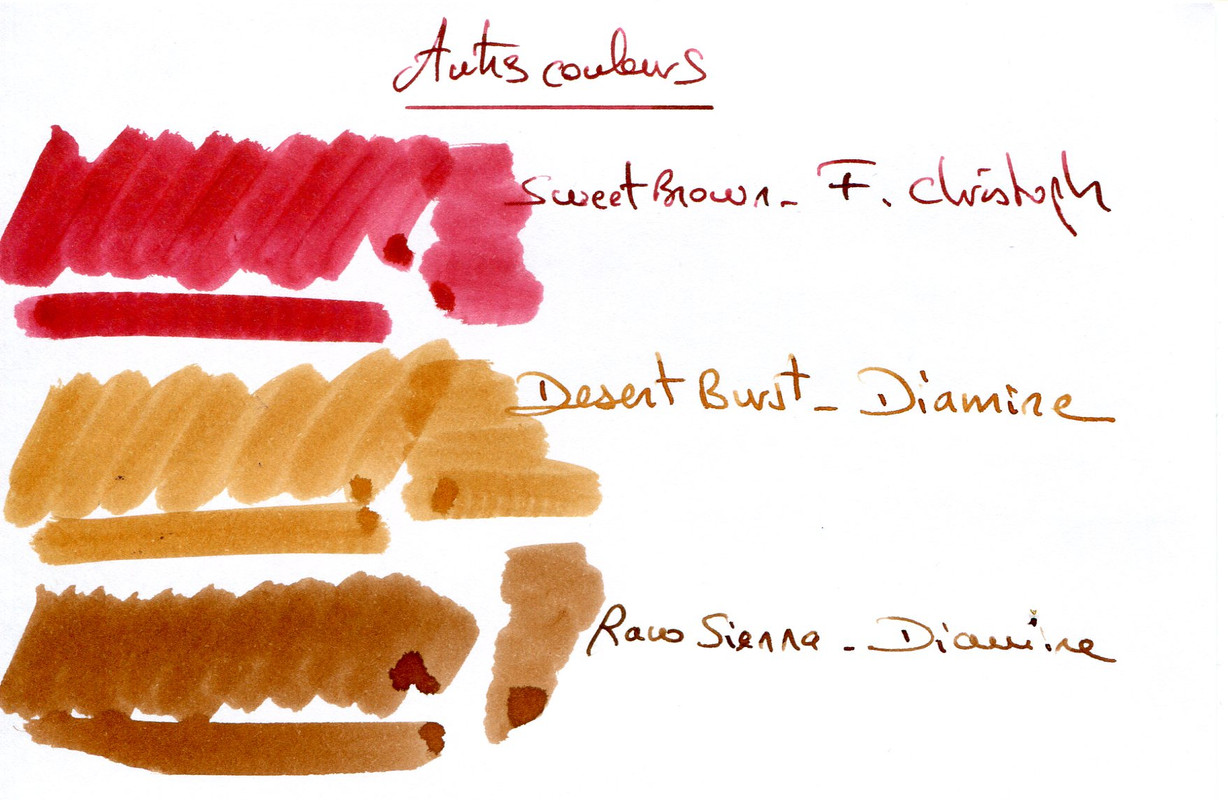 Autres couleurs
Sweet Brown - F. Christoph
Desert Burst - Diamine
Raw Sienna - Diamine